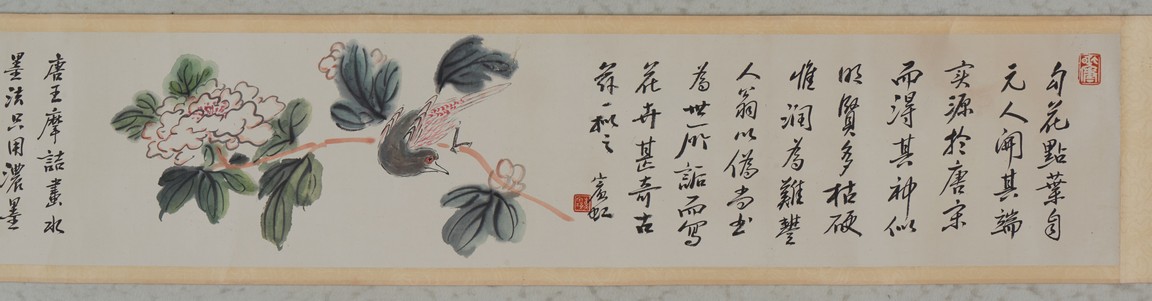 勾花點葉自
元人開其端
实源於唐宋
而淂其神似
明賢多枯硬
惟润為難豐
人翁以偽尚书
為世所詬而寫
花卉甚奇古
兹一拟之
賓虹
唐王摩詰畫水
墨法只用濃墨